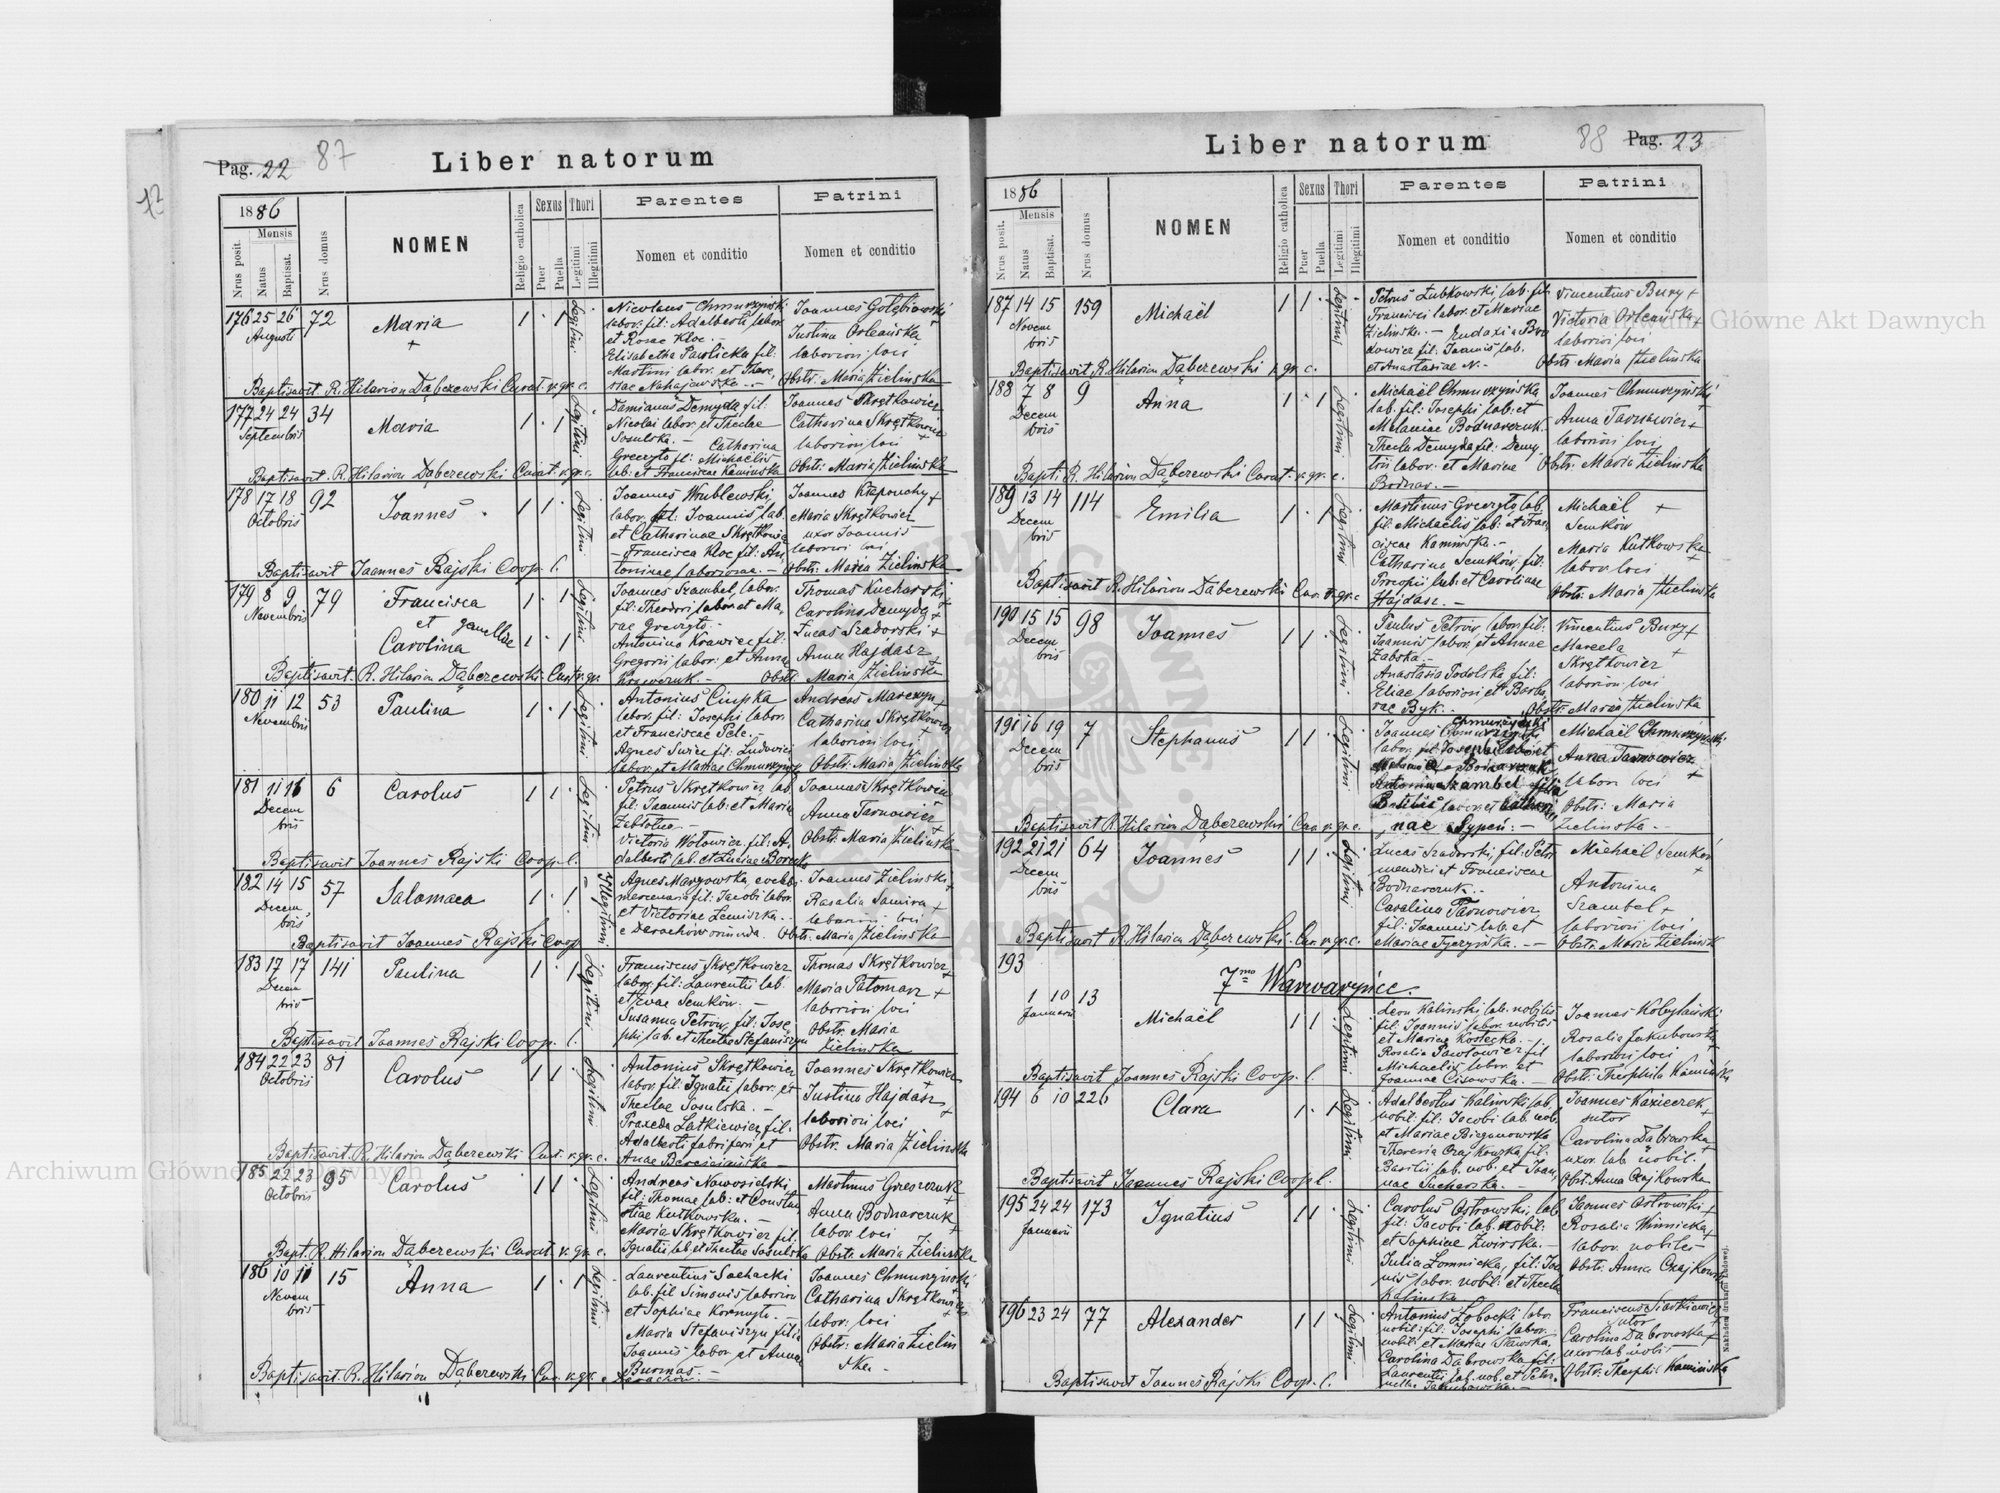 Pag. 22
87
Liber natorum
1886
Mensis
Nrus posit.
Natus
Baptisat.
Nrus domus
NOMEN
Religio catholica
Sexus
Puer
Puella
Thori
Legitimi
Illegitimi
Parentes
Nomen et conditio
Patrini
Nomen et conditio
176 25 26 72
Augusti
Maria
+
1 · 1
Legitimi
Nicolaus Chmurzyński
labor. fil: Adalberti labor.
et Rosae Kloc. –
Elisabetha Pawlicka fil:
Martini labor. et There,
siae Nahajowska. –
Joannes Gołębiowski
Justina Orleańska
laboriosi loci
Obstr: Maria Zielinska
Baptisavit R. Hilarion Dąberewski Curat. r. gr. c.
177 24 24 34
Septembris
Maria
1 · 1
Legitimi
Damianus Demyda fil:
Nicolai labor. et Theclae
Sosulska. – Catharina
Greczyło fil: Michaëlis
lab: et Franciscae Kaminska
Joannes Skrętkowicz
Catharina Skrętkowicz
+
laboriosi loci
Obstr: Maria Zielinska
Baptisavit R. Hilarion Dąberewski Curat. r. gr. c.
178 17 18 92
Octobris
Joannes
1 1 ·
Legitimi
Joannes Wrublewski,
labor. fil: Joannis lab.
et Catharinae Skrętkowicz
– Francisca Kloc fil: An,
toninae laboriosae. –
Joannes Kłapouchy +
Maria Skrętkowicz
uxor Joannis
laboriosi loci
Obstr: Maria Zielinska
Baptisavit Joannes Rajski Coop. l.
179 8 9 79
Novembris
Francisca
et gemellae
Carolina
1 · 1
1 · 1
Legitimi
Joannes Szambel, labor.
fil: Theodori labor et Ma,
rae Greczyło. –
Antonina Krawiec fil:
Gregorii labor: et Annae
Krawczuk. –
Thomas Kucharski
Carolina Demyda +
Lucas Szadorski +
Anna Hajdasz
Obstr: Maria Zielinska
Baptisavit R. Hilarion Dąberewski Curt. r. gr.
180 11 12 53
Novembris
Paulina
1 · 1
Legitimi
Antonius Ciupka
labor. fil: Josephi labor.
et Franciscae Pelc. –
Agnes Swic fil: Ludovici
labor. et Mariae Chmurzyńska
Andreas Marczyn +
Catharina Skrętkowicz
+
laboriosi loci
Obstr: Maria Zielinska
181 11 16 6
Decem
bris
Carolus
1 1 ·
Legitimi
Petrus Skrętkowicz, lab.
fil: Joannis lab: et Maria
Zabłotna –
Victoria Wołowicz, fil: A,
dalberti lab. et Luciae Boreck
Joannes Skrętkowicz
Anna Tarnowicz
+
Obstr: Maria Zielinska
Baptisavit Joannes Rajski Coop. l.
182 14 15 57
Decem
bris
Salomaea
1 · 1
Illegitimi
Agnes Mazgowska, coelebs
mercenaria fil: Jacobi labor.
et Victoriae Lemiszka. –
e Darachów oriunda.
Joannes Zielinski +
Rosalia Samira +
laboriosi loci
Obstr: Maria Zielinska
Baptisavit Joannes Rajski Coop.
183 17 17 141
Decem
bris
Paulina
1 · 1
Legitimi
Franciscus Skrętkowicz
labor. fil: Laurentii lab.
et Evae Semków. –
Susanna Petrów, fil: Jose,
phi, lab. et Theclae Stefaniszyn
Thomas Skrętkowicz +
Maria Patomarz +
laboriosi loci
Obstr: Maria
Zielinska
Baptisavit Joannes Rajski Coop. l.
184 22 23 81
Octobris
Carolus
1 1 ·
Legitimi
Antonius Skrętkowicz
labor. fil: Ignatii labor. et
Theclae Sosulska. –
Praxeda Latkiewicz fil:
Adalberti fabri feri et
Joannes Skrętkowicz
+
Justina Hajdasz
+
laboriosi loci
Obstr: Maria Zielinska
Baptisavit R. Hilarion Dąberewski Curt. r. gr. c.
185 22 23 95
Octobris
Carolus
1 1 ·
Legitimi
Andreas Nowosielski
fil: Thomae lab: et Constan,
tiae Kutkowska. –
Maria Skrętkowicz fil:
Ignatii lab. et Theclae Sosulska
Martinus Greszczuk
+
Anna Bodnarczuk
+
labor. loci
Obstr: Maria Zielinska
Bapt. R. Hilarion Dąberewski Curat. r. gr. c.
186 10 11 15
Novem
bris
Anna
1 · 1
Legitimi
Laurentius Sochacki
lab. fil Simonis laboriosi
et Sophiae Kornyło. –
Maria Stefaniszyn filia
Joannis labor. et Annae
Burmas. –
Joannes Chmurzyński
+
Catharina Skrętkowicz
+
labor: loci
Obstr: Maria Zielin
ska –
Baptisavit R. Hilarion Dąberewski Cur. r. gr. c.
Liber natorum
88
Pag. 23
1886
Mensis
Nrus posit.
Natus
Baptisat.
Nrus domus
NOMEN
Religio catholica
Sexus
Puer
Puella
Thori
Legitimi
Illegitimi
Parentes
Nomen et conditio
Patrini
Nomen et conditio
187 14 15 159
Novem
bris
Michaël
1 1 ·
Legitimi
Petrus Łubkowski, lab. fil:
Francisci labor. et Mariae
Zielinska. – Eudoxia Bon
dowicz fil: Joannis lab.
et Anastasiae N. –
Vincentius Bury +
Victoria Orleańska +
laboriosi loci
Obstr: Maria Zielinska
Baptisavit R. Hilarion Dąberewski r. gr. c.
188 7 8 9
Decem
bris
Anna
1 · 1
Legitimi
Michaël Chmurzyński
lab. fil: Josephi lab: et
Melaniae Bodnarczuk.
Thecla Demyda fil: Demy
trii labor. et Mariae
Bodnar. –
Joannes Chmurzyński
+
Anna Tarnowicz +
laboriosi loci
Obstr: Maria Zielinska
Bapt. R. Hilarion Dąberewski Curat. r. gr. c.
189 13 14 114
Decem
bris
Emilia
1 · 1
Legitimi
Martinus Greczyło lab.
fil: Michaelis lab: et Fran,
ciscae Kamińska. –
Catharina Semków, fil:
Procopii lab: et Carolinae
Hajdasz. –
Michaël +
Semków
Maria Kutkowska
+
labor. loci
Obstr: Maria Zielinska
Baptisavit R. Hilarion Dąberewski Cur. r. gr. c
190 15 15 98
Decem
bris
Joannes
1 1 ·
Legitimi
Paulus Petrów labor. fil:
Joannis labor. et Annae
Zabska. –
Anastasia Podolska fil:
Eliae laboriosi et Barba,
rae Byk. –
Vincentius Bury +
Marcela
+
Skrętkowicz
laboriosi loci
Obstr: Maria Zielinska
191 16 19 7
Decem
bris
Stephanus
1 1 ·
Legitimi
Chmurzyński
Joannes
labor. fil Josephi labor. et
Melaniae Bodnarczuk
Antonina Szambel filia
Basilii labor. et Cathari,
nae Sypeń: –
Michaël Chmurzyński
+
Anna Tarnowicz
+
labor. loci
Obstr: Maria
Zielinska. –
Baptisavit R. Hilarion Dąberewski Cur. r. gr. c.
192 21 21 64
Decem
bris
Joannes
1 1 ·
Legitimi
Lucas Szadorski, fil: Petri
mendici et Franciscae
Bodnarczuk. –
Carolina Tarnowicz,
fil: Joannis lab. et
Mariae Tyczyńska. – –
Michaël Semków
+
Antonina
Szambel +
laboriosi loci
Obstr: Maria Zielinsk
Baptisavit R. Hilarion Dąberewski Cur. r. gr. c.
193
7mo Warwaryńce.
1 10 13
Januarii
Michaël
1 1 ·
Legitimi
Leon Kalinski, lab. nobilis
fil: Joannis labor. nobilis
et Mariae Kostecka. –
Rosalia Pawłowicz fil
Michaelis labor. et
Joannae Cisowska. –
Joannes Kobylański
+
Rosalia Jakubowska
+
laboriosi loci
Obstr: Theophila Kaminski
Baptisavit Joannes Rajski Coop. l.
194 6 10 226
Clara
1 · 1
Legitimi
Adalbertus Kalinski, lab.
nobil: fil: Jacobi lab. nob.
et Mariae Bieganowska
– Theresia Czajkowska fil:
Basilii lab. nob. et Joan,
nae Sucharska. –
Joannes Kazieczek +
sutor
Carolina Dąbrowska
+
uxor lab. nobil.
Obstr: Anna Czajkowska
Baptisavit Joannes Rajski Coop l.
195 24 24 173
Januarii
Ignatius
1 1
Legitimi
Carolus Ostrowski, lab.
fil: Jacobi lab. nobil:
et Sophiae Zwirska. –
Julia Łomnicka, fil: Joan
nis labor. nobil: et Thecla
Kalinska
Joannes Ostrowski +
Rosalia Winnicka +
labor. nobiles –
Obstr: Anna Czajkowska
196 23 24 77
Alexander
1 1 ·
Legitimi
Antonius Łobocki labor.
nobil: fil: Josephi labor.
nobil: et Mariae Stawska.
Carolina Dąbrowska fil:
Laurentii lab. nob. et Petro,
nella Jakubowska. –
Franciscus Siatkiewicz
sutor
+
Carolina Dąbrowska +
uxor lab: nobil:
Obstr: Theophi: Kaminska
Baptisavit Joannes Rajski Coop. l.
Archiwum Główne Akt Dawnych
Archiwum Główne Akt Dawnych